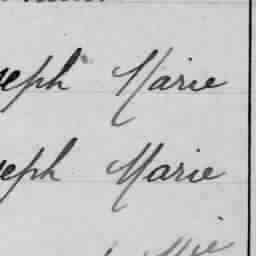 seph Marie
seph Marie